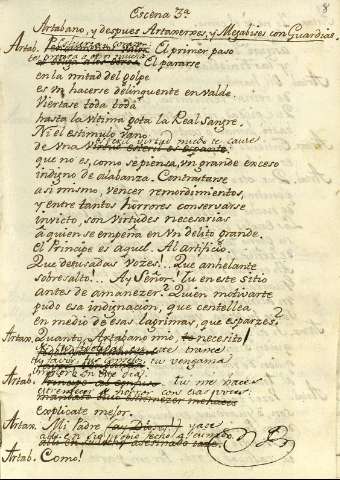 8
Escena 3ª
Artabano, y despues Artaxerxes, y Megabises con Guardias.
Artab. El primer paso
El pararse
en la mitad del golpe
es hacerse delinquente en valde.
Viertase toda toda
hasta la ultima gota la Real sangre.
Ni el estimulo vano
de una
que no es, como se piensa, un grande exceso
indigno de alabanza. Contrastarse
asi mismo, vencer remordimientos,
y entre tantos horrores conservarse
invicto, son virtudes necesarias
a quien se empeña en un delito grande.
El Principe es aquel. Al artificio.
Que desusadas vozes!.. Que anhelante
sobresalto!.. Ay Señor! Tu en este sitio
antes de amanezer? Quien motivarte
pudo esa indignacion, que centellea
en medio de esas lagrimas, que esparzes?
Artax. Quanto, Artabano mio, te necesito!
tu venganza
Artab. tu me haces
estremezer de horror con esas vozes.
explicate mejor.
Artax. Mi Padre (ay Dioses!) yase
en su propio lecho
Artab. Como!